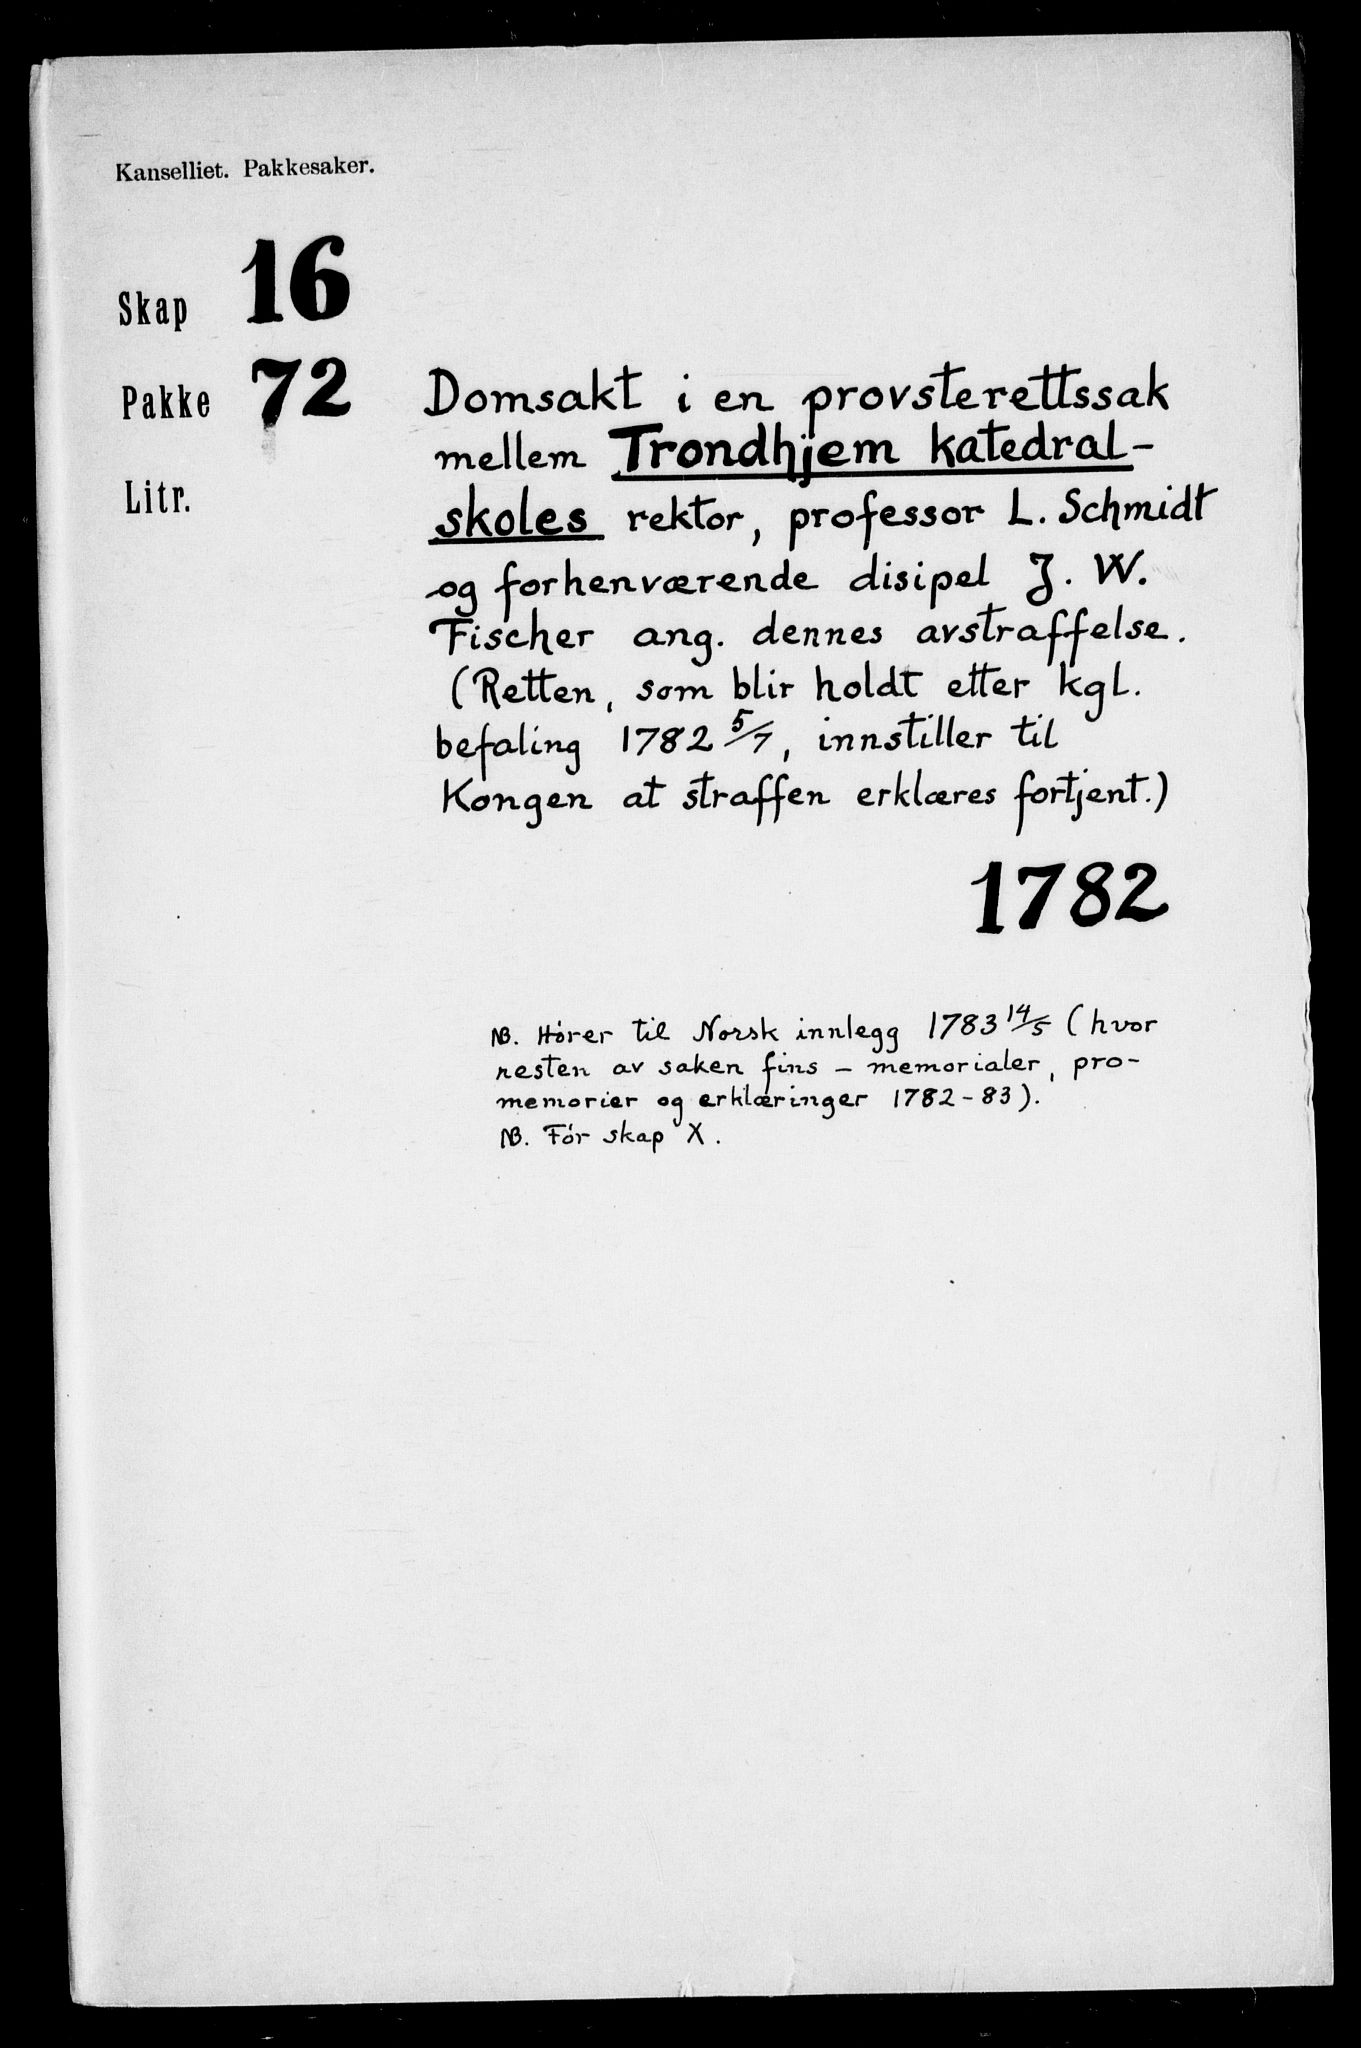 Kanselliet. Pakkesaker.
Skap 16
Pakke 72
Litr.
Domsakt i en provsterettssak
mellem Trondhjem katedral-
skoles rektor, professor L. Schmidt
og forhenværende disipel J. W.
Fischer ang. dennes avstraffelse.
(Retten, som blir holdt etter kgl.
befaling 1782 5/7, innstiller til
Kongen at straffen erklæres fortjent.)
1782
NB. Hører til Norsk innlegg 1783 14/5 (hvor
resten av saken fins – memorialer, pro-
memorier og erklæringer 1782-83).
NB. Før skap X.